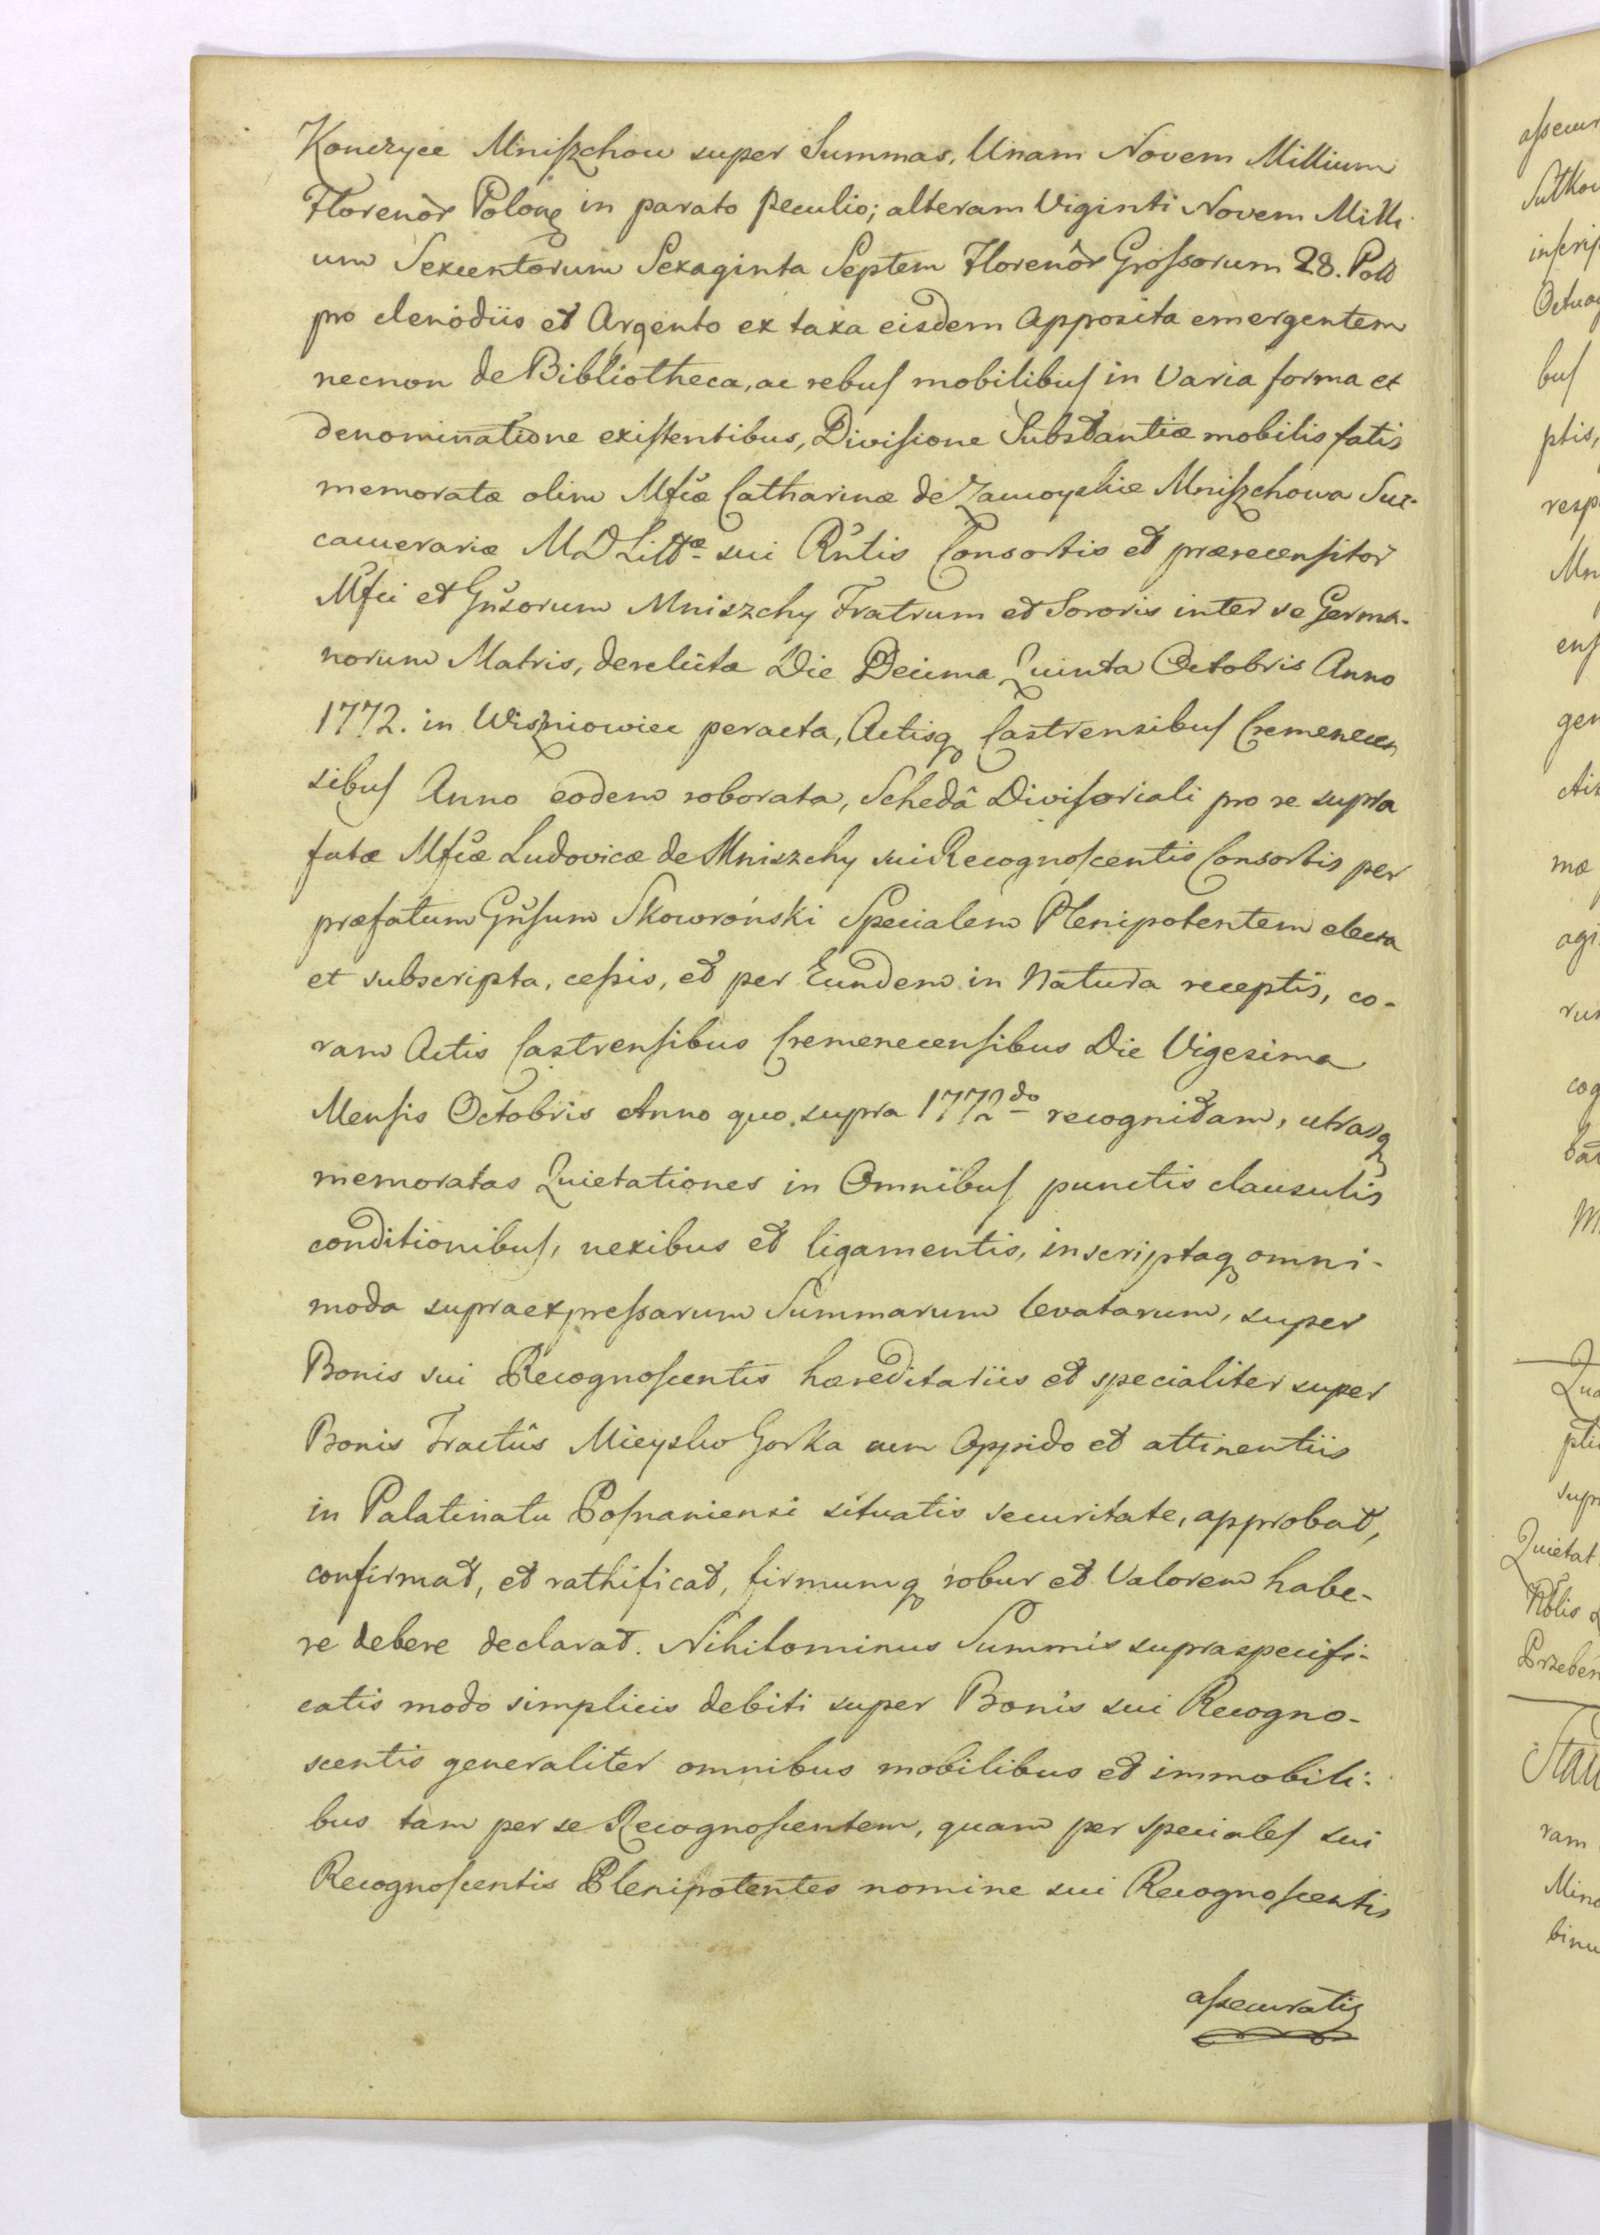 Kończyce Mniszchow super Summas, Unam Novem Millium
Florenôr Polonę in parato peculio; alteram Viginti Novem Milli
um Sexcentorum Sexaginta Septem Florenôr Grossorum 28. Poll
pro clenodiis et Argento ex taxa eisdem apposita emergentem
necnon de Bibliotheca, ac rebus mobilibus in Varia forma et
denominatione existentibus, Divisione Substantiæ mobilis fatis
memoratæ olim Mfcæ Catharinæ de Zamoyskie Mniszchowa Suc-
camerariæ M D Littæ sui Rntis Consortis et prærecensitor
Mfci et Gnsorum Mniszchy Fratrum et Sororis inter se Germa-
norum Matris, derelictæ Die Decima Quinta Octobris Anno
1772. in Wiszniowiec peracta, Actisq Castrensibus Cremenecen
sibus Anno eodem roborata, Schedâ Divisoriali pro se supra
fatæ Mfcæ Ludovicæ de Mniszchy sui Recognoscentis Consortis per
præfatum Gnsum Skowroński Specialem Plenipotentem electa
et subscripta, cessis, et per Eundem in Natura receptis, co-
ram Actis Castrensibus Cremenecensibus Die Vigesima
Mensis Octobris Anno quo supra 1772do recognitam, utrasq
memoratas Quietationes in Omnibus punctis clausulis
conditionibus, nexibus et ligamentis, inscriptaq omni-
moda supraexpressarum Summarum levatarum, super
Bonis sui Recognoscentis hæreditariis et specialiter super
Bonis Tractûs Mieysko Gorka cum Oppido et attinentiis
in Palatinatu Posnaniensi situatis securitate, approbat,
confirmat, et rathificat, firmumq robur et Valorem habe-
re debere declarat. Nihilominus Summis supraspecifi-
catis modo simplicis debiti super Bonis sui Recogno-
scentis generaliter omnibus mobilibus et immobili-
bus tam per se Recognoscentem, quam per speciales sui
Recognoscentis Plenipotentes nomine sui Recognoscentis
assecuratis